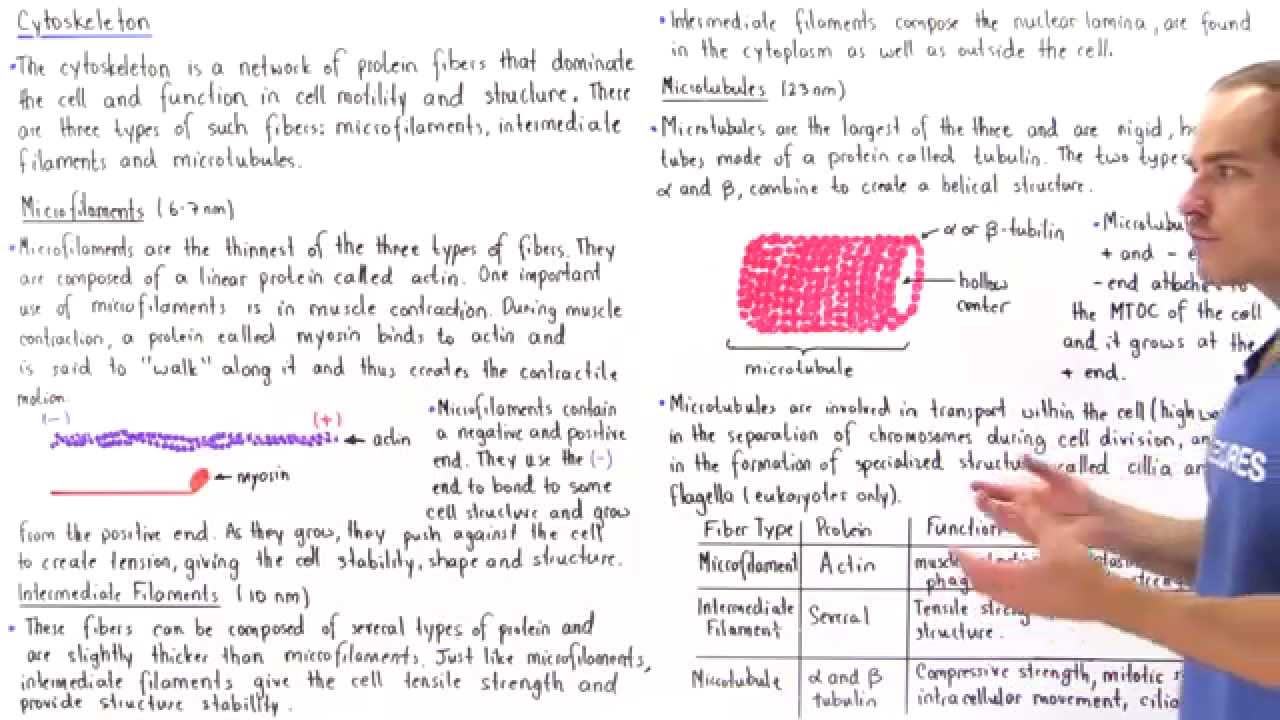 Cytoskeleton
•The cytoskeleton is a network of protein fibers that dominate
the cell and function in cell motility and structure. There
are three types of such fibers: microfilaments, intermediate
filaments and microtubules.
Microfilaments (6-7 nm)
•Microfilaments are the thinnest of the three types of fibers. They
are composed of a linear protein called actin. One important
use of microfilaments is in muscle contraction. During muscle
contraction, a protein called myosin binds to actin and
is said to "walk" along it and thus creates the contractile
motion.
(-) (+)
actin
myosin
•Microfilaments contain
a negative and positive
end. They use the (-)
end to bond to some
cell structure and grow
from the positive end. As they grow, they push against the cell
to create tension, giving the cell stability, shape and structure.
Intermediate Filaments (10 nm)
• These fibers can be composed of several types of protein and
are slightly thicker than microfilaments. Just like microfilaments,
intermediate filaments give the cell tensile strength and
provide structure stability.
•Intermediate filaments compose the nuclear lamina, are found
in the cytoplasm as well as outside the cell.
Microtubules (23nm)
•Microtubules are the largest of the three and are rigid,
tubes made of a protein called tubulin. The two types
α and β, combine to create a helical structure.
α or β-tubilin
hollow
center
microtubule
+ and -
- end
the MTOC of the cell
and it grows at the
+ end.
•Microtubules are involved in transport within the cell (high
in the separation of chromosomes during cell division,
in the formation of specialized called cillia
flagella (eukaryotes only).
Fiber Type Protein Function
Microfilament Actin
Intermediate
Filament Several Tensile
structure.
Microtubule α and β
tubulin Compressive strength, mitotic
intracellular movement,